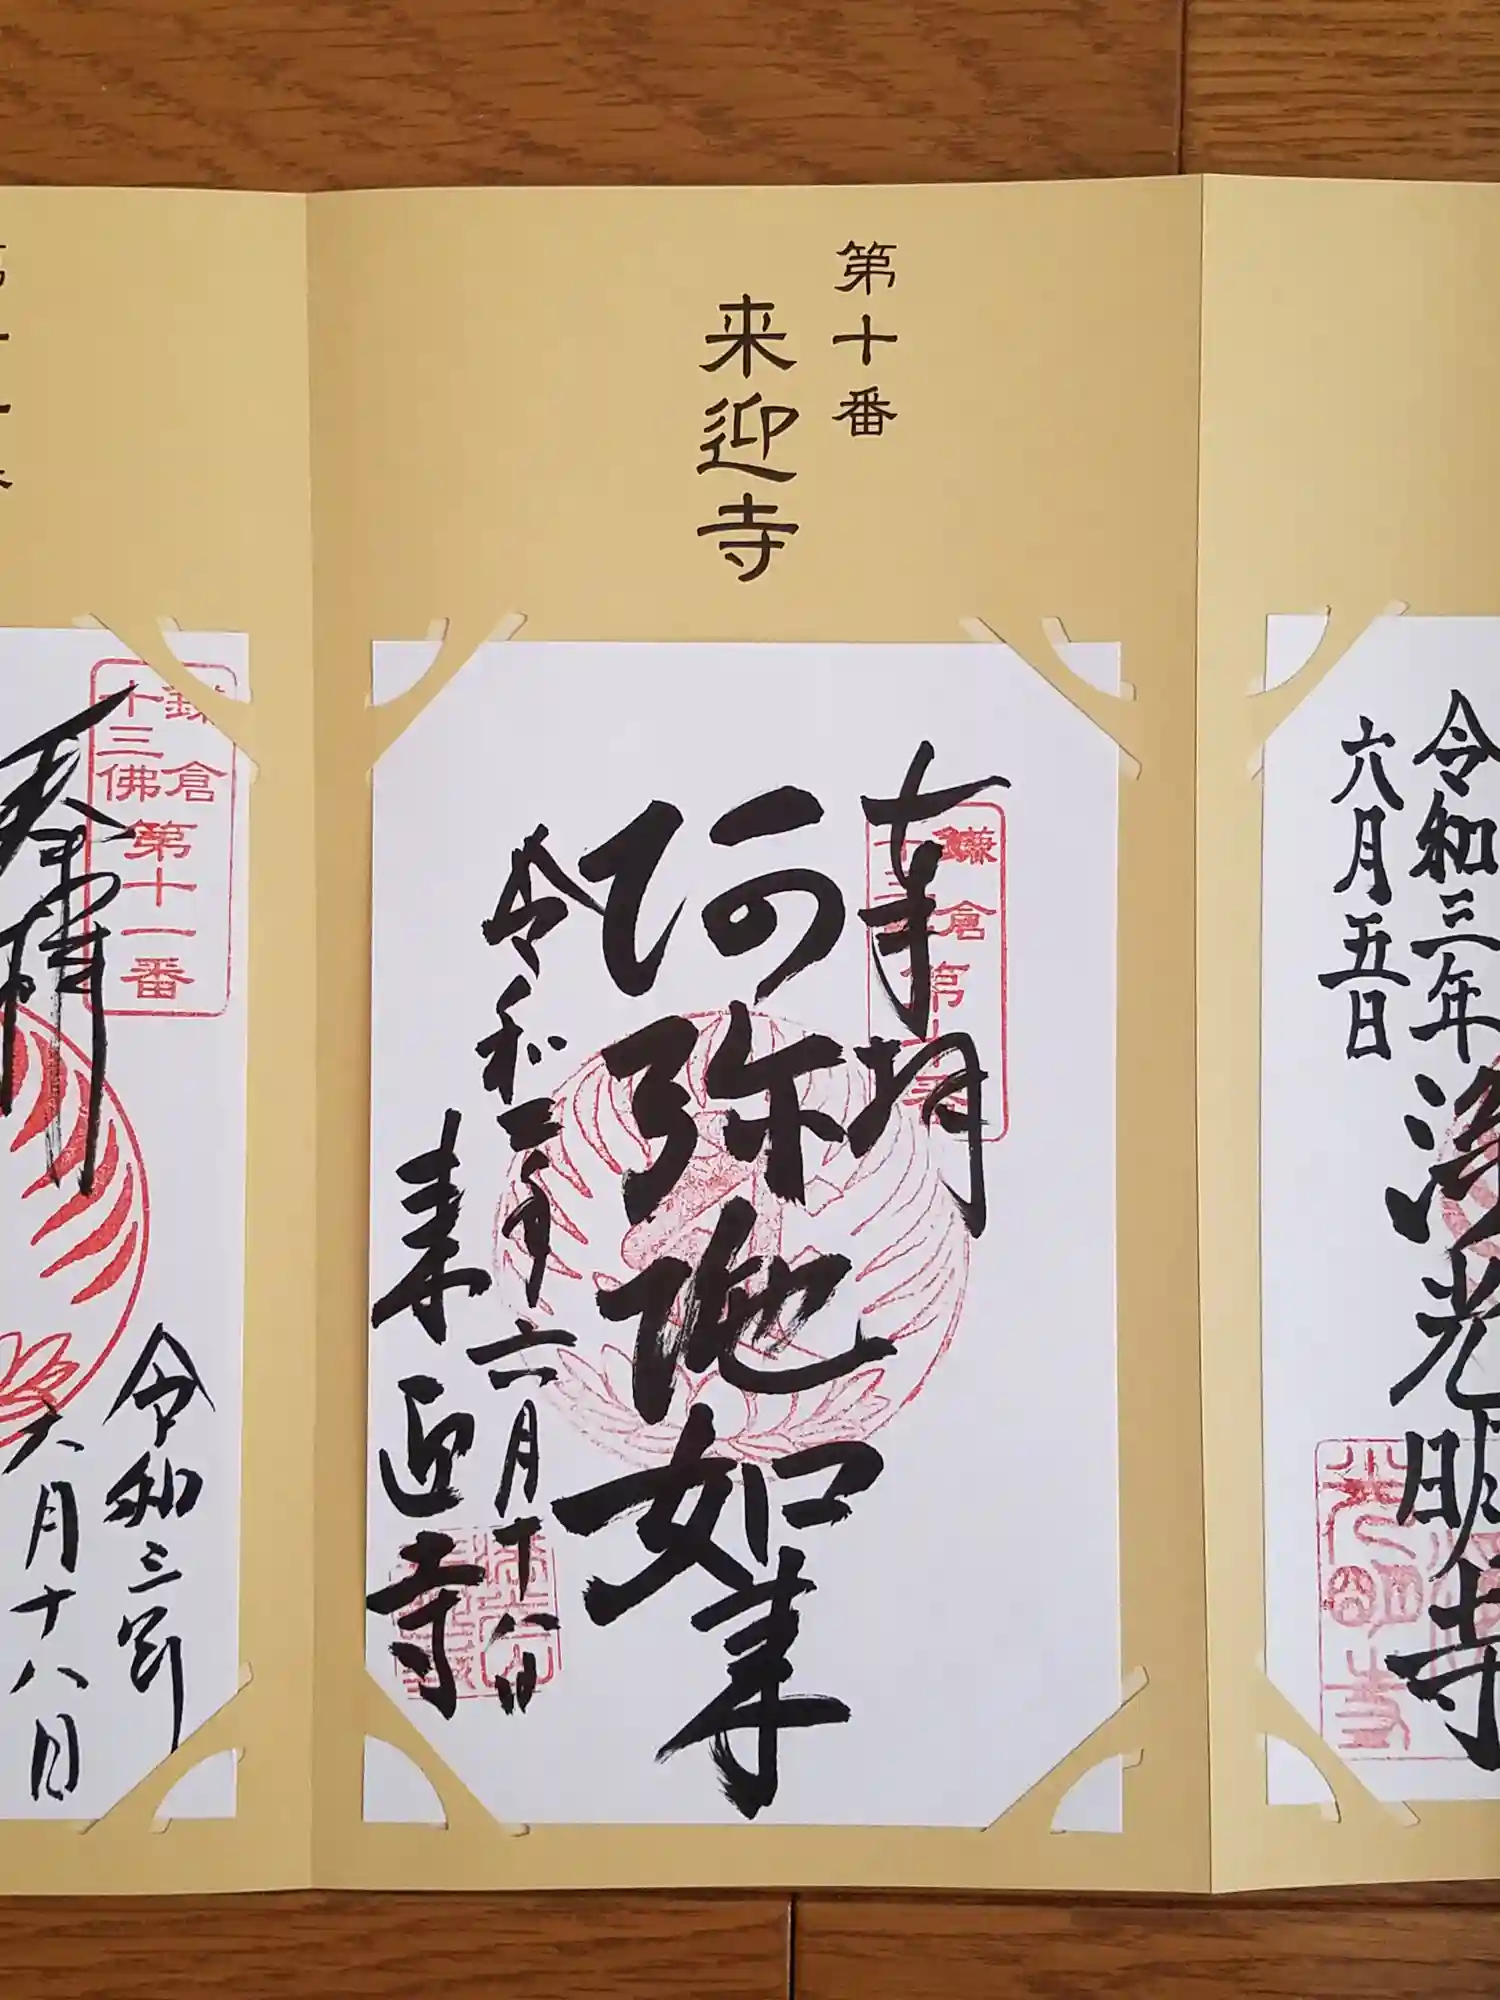 第十番
来迎寺
鎌倉
第十番
奉拝
阿弥陀如来
令和三年六月十八日
来迎寺
令和三年
六月五日
浄光明寺
鎌倉
十三佛
第十一番
奉拝
令和三年
六月十八日